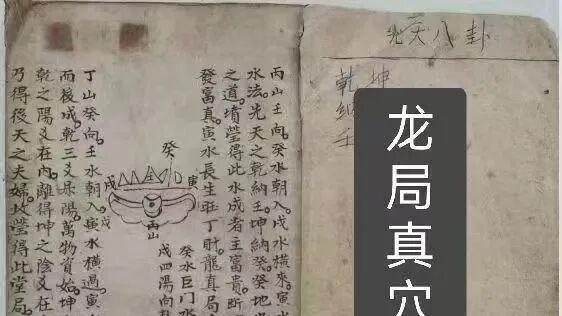 先天八卦
乾 坤
納
壬
龙局真穴
丙山壬向癸水朝入戌水横來寅水
水法先天之乾納壬坤納癸癸地
之道墳塋得此水成者主富貴斷
發富真寅水長生旺丁財龍真局
癸水巨門水
戌四湯向
癸
戌
寅
丙山
丁山癸向壬水朝入寅水横過寅
而後成乾三爻乐陽萬物資始坤
乾之陽爻在内離得坤之陰爻在
乃得後天之夫婦故塋得此堂局